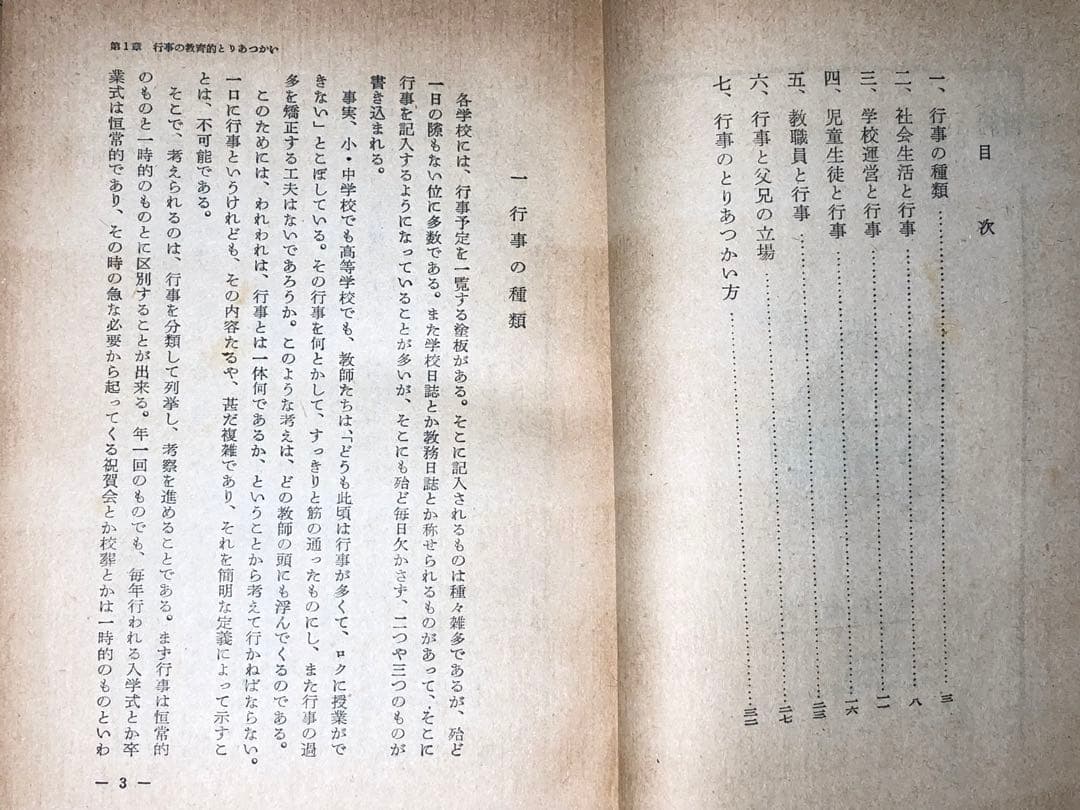 目次
一、行事の種類……………………三
二、社会生活と行事……………………八
三、学校運営と行事……………………一一
四、児童生徒と行事……………………一六
五、教職員と行事……………………二三
六、行事と父兄の立場……………………二七
七、行事のとりあつかい方……………………三二
第1章 行事の教育的とりあつかい
一 行事の種類
各学校には、行事予定を一覧する塗板がある。そこに記入されるものは種々雑多であるが、殆ど
一日の隙もない位に多数である。また学校日誌とか教務日誌とか称せられるものがあって、そこに
行事を記入するようになっていることが多いが、そこにも殆ど毎日欠かさず、二つや三つのものが
書き込まれる。
事実、小・中学校でも高等学校でも、教師たちは、「どうも此頃は行事が多くて、ロクに授業がで
きない」とこぼしている。その行事を何とかして、すっきりと筋の通ったものにし、また行事の過
多を矯正する工夫はないであろうか。このような考えは、どの教師の頭にも浮んでくるのである。
このためには、われわれは、行事とは一体何であるか、ということから考えて行かねばならない。
一口に行事というけれども、その内容たるや、甚だ複雑であり、それを簡明な定義によって示すこ
とは、不可能である。
そこで、考えられるのは、行事を分類して列挙し、考察を進めることである。まず行事は恒常的
のものと一時的のものとに区別することが出来る。年一回のものでも、毎年行われる入学式とか卒
業式は恒常的であり、その時の急な必要から起ってくる祝賀会とか校葬とかは一時的のものといわ
— 3 —